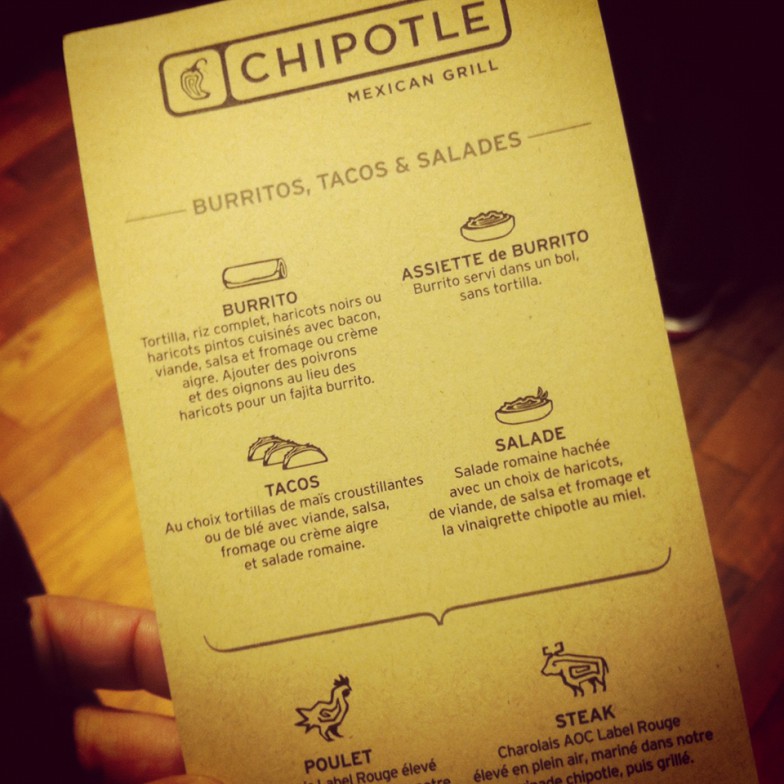 CHIPOTLE
MEXICAN GRILL
BURRITOS, TACOS & SALADES
BURRITO
Tortilla, riz complet, haricots noirs ou
haricots pintos cuisinés avec bacon,
viande, salsa et fromage ou crème
aigre. Ajouter des poivrons
et des oignons au lieu des
haricots pour un fajita burrito.
ASSIETTE de BURRITO
Burrito servi dans un bol,
sans tortilla.
TACOS
Au choix tortillas de maïs croustillantes
ou de blé avec viande, salsa,
fromage ou crème aigre
et salade romaine.
SALADE
Salade romaine hachée
avec un choix de haricots,
de viande, de salsa et fromage et
la vinaigrette chipotle au miel.
POULET
Label Rouge élevé
notre
STEAK
Charolais AOC Label Rouge
élevé en plein air, mariné dans notre
chipotle, puis grillé.